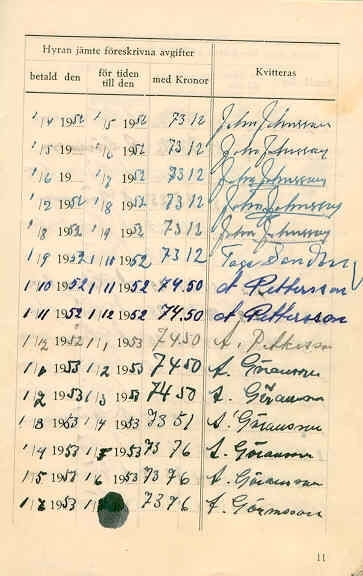 Hyran jämte föreskrivna avgifter
Kvitteras
betald den
för tiden till den
med Kronor
1/4 1952 1/5 1952 73 12 John Johnsson
1/5 19 1/6 1952 73 12 John Johnsson
1/6 19 1/7 1952 73 12 John Johnsson
1/7 1952 1/8 1952 73 12 John Johnsson
1/8 1952 1/9 1952 73 12 John Johnsson
1/9 1952 1/10 1952 73 12 Tage Sandberg
1/10 1952 1/11 1952 74.50 A Pettersson
1/11 1952 1/12 1952 74.50 A Pettersson
1/12 1952 1/1 1953 74.50 A. Pettersson
1/1 1953 1/2 1953 74 50 A. Göransson
1/2 1953 1/3 1953 74 50 A. Göransson
1/3 1953 1/4 1953 73 51 A. Göransson
1/4 1953 1/5 1953 73 76 A. Göransson
1/5 1953 1/6 1953 73 76 A. Göransson
1953 73 76 A. Göransson
11